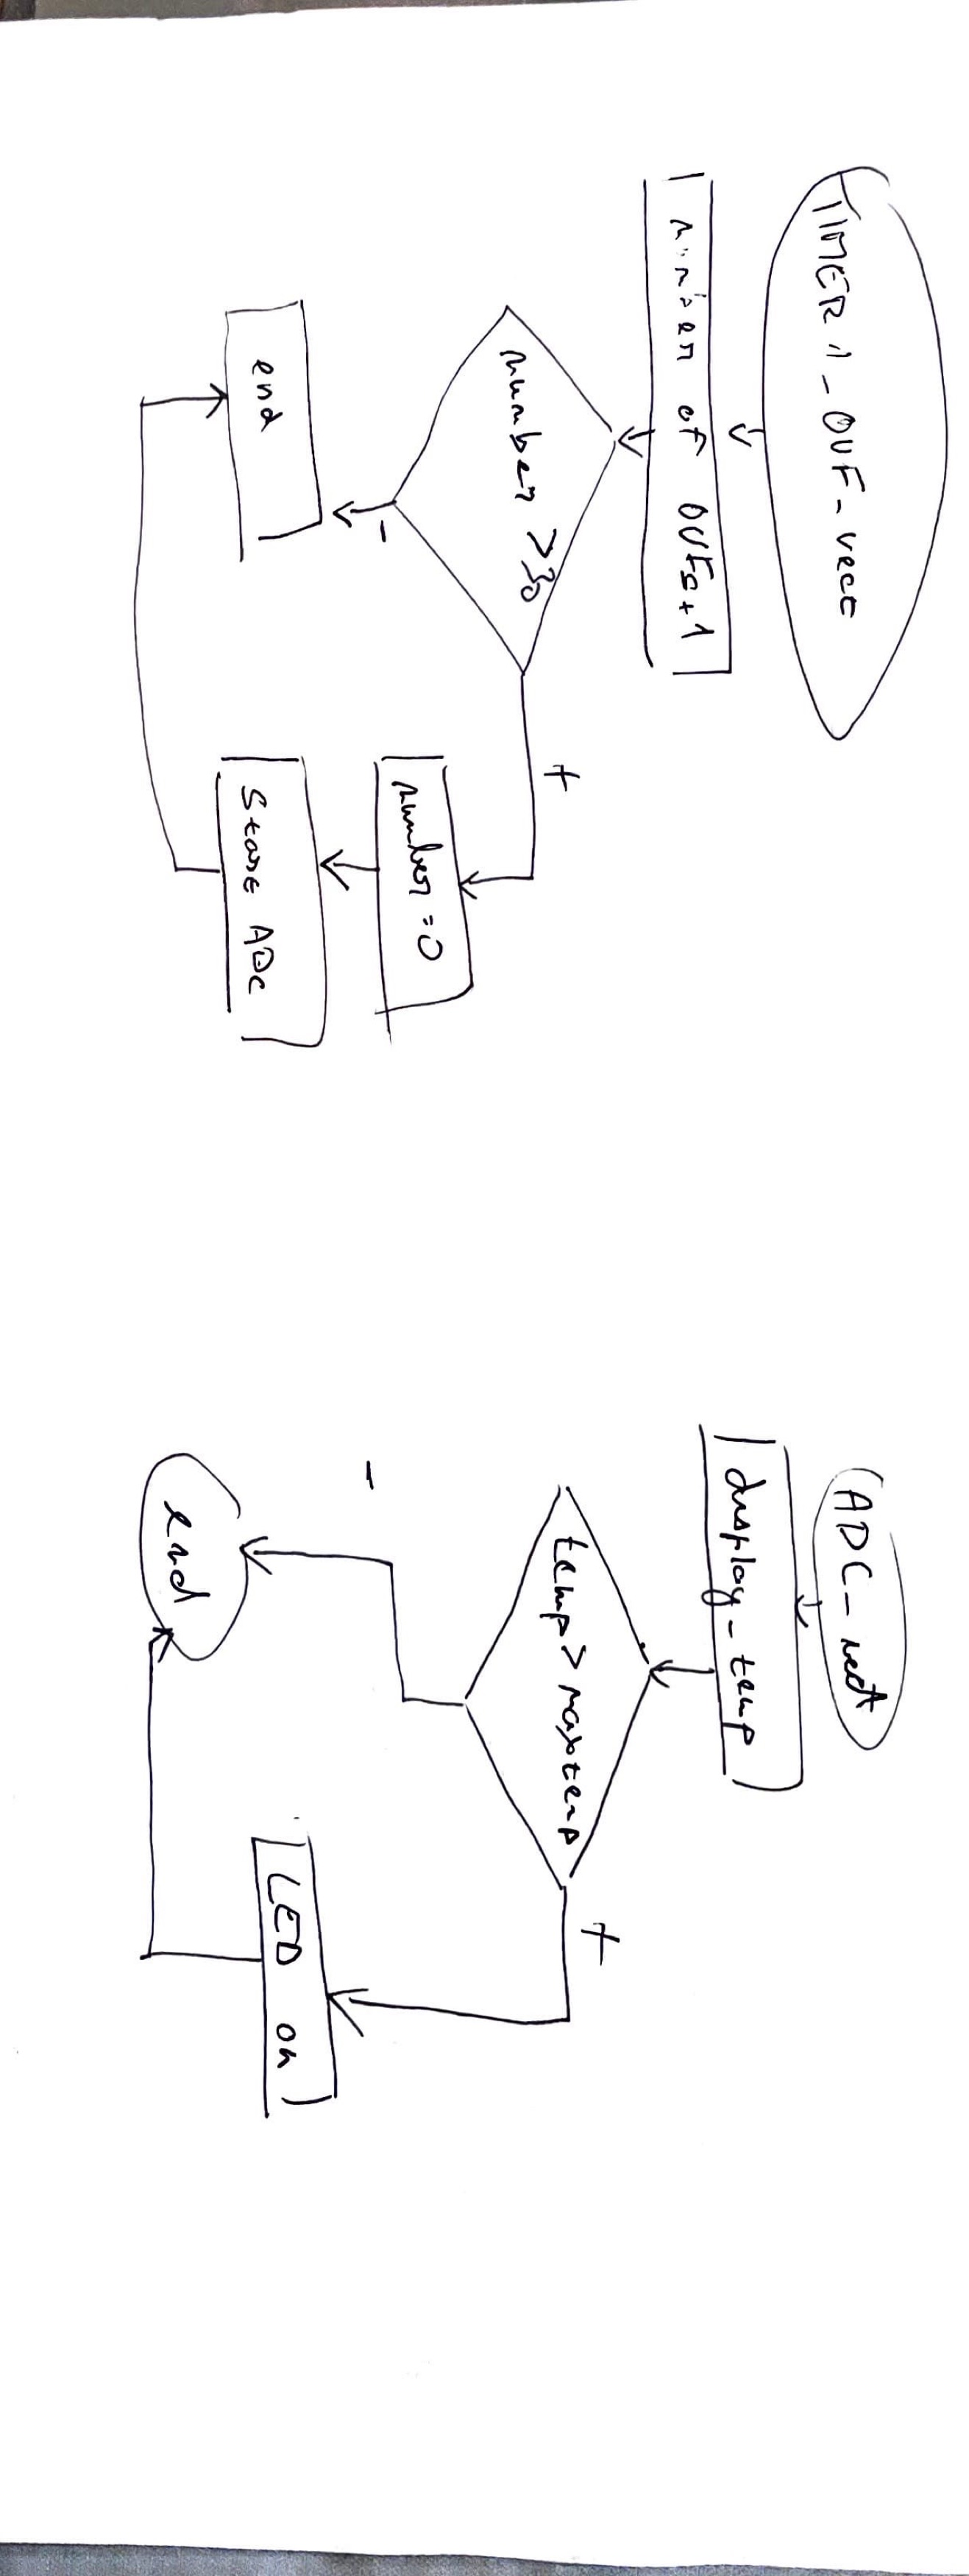 TIMER1_OVF_vect
number of OVFs+1
number >30
+
-
number=0
Start ADC
end
ADC_vect
display_temp
temp>maxtemp
+
-
LED on
end